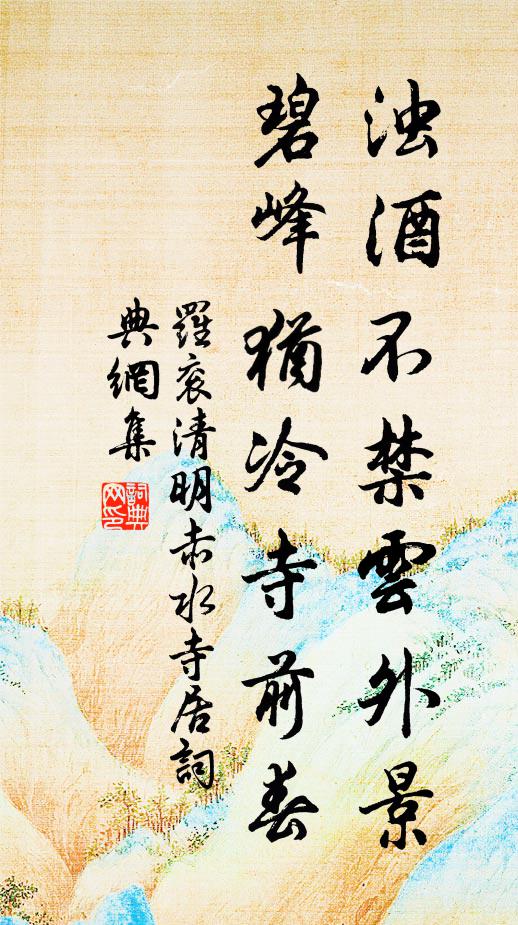 浊酒不禁雲外景
碧峰猶冷寺前春
羅衮清明赤水寺居詞
典網集
詞典
网印